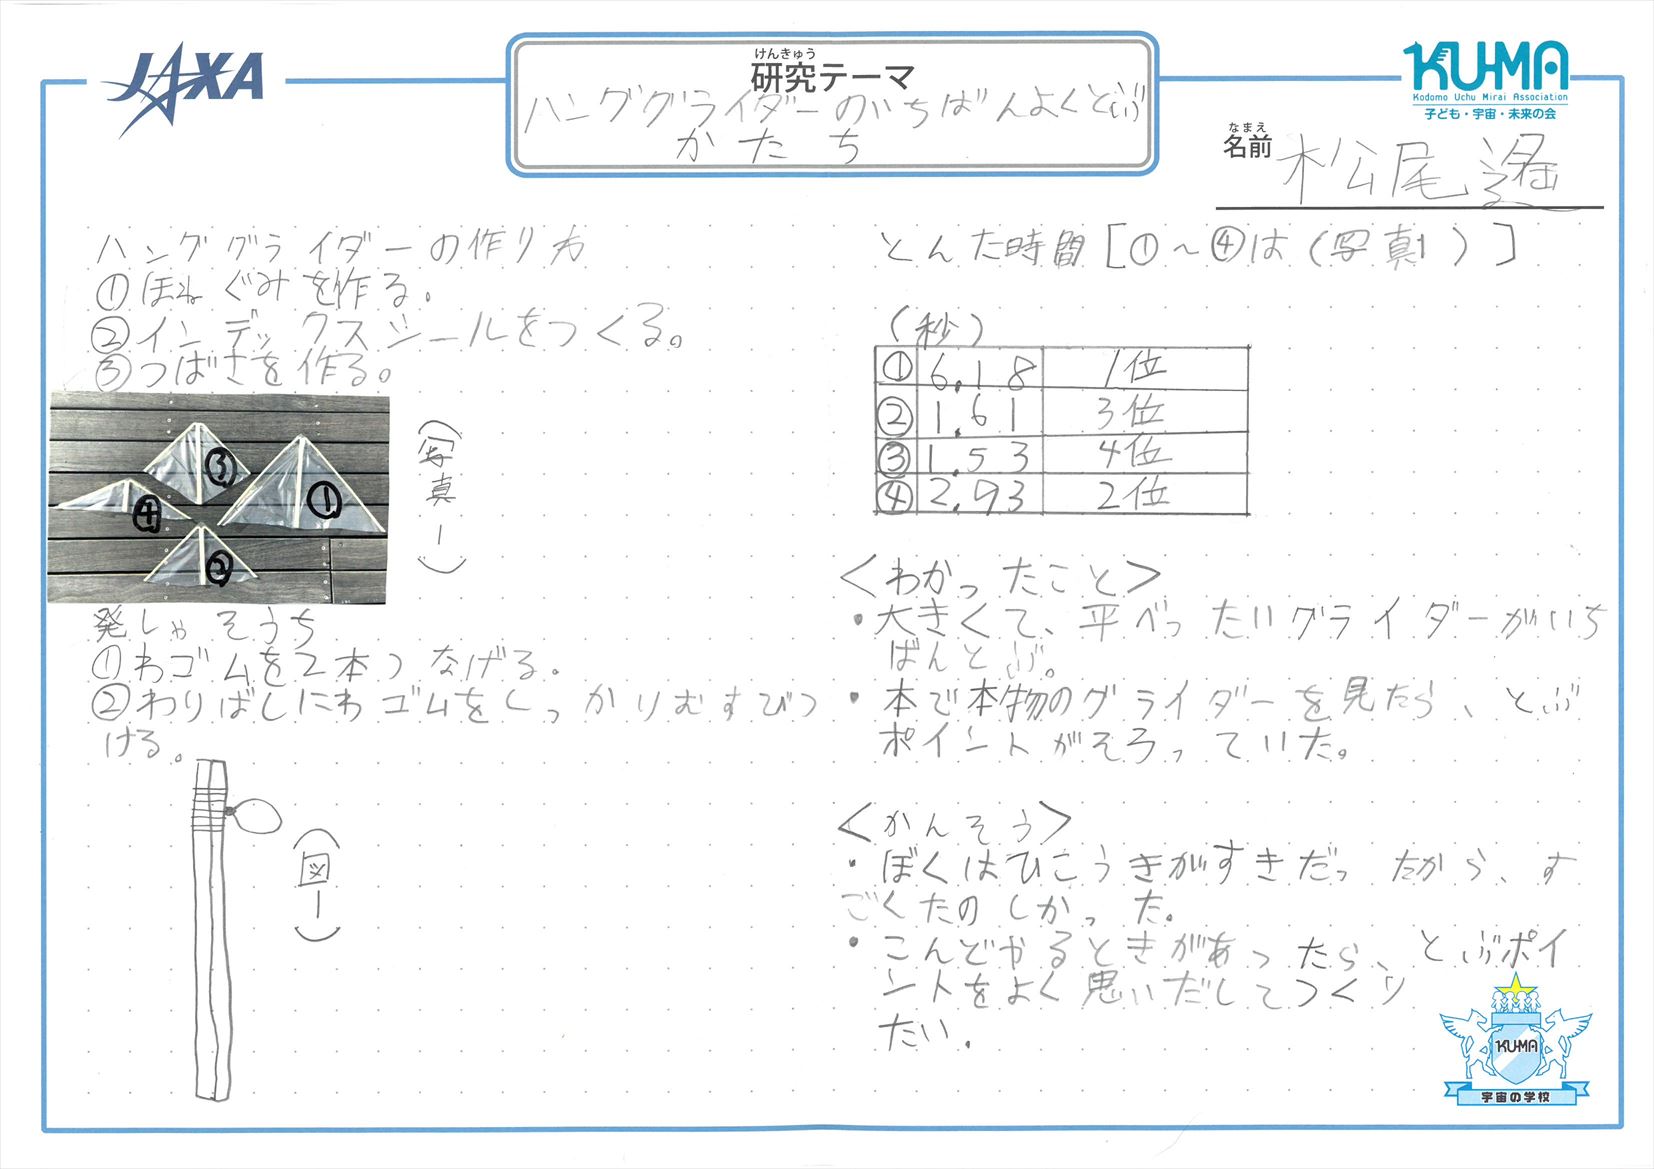 JAXA
けんきゅう
研究テーマ
ハンググライダーのいちばんよくとぶ
かたち
KU-MA
Kodomo Uchu Mirai Association
子ども・宇宙・未来の会
なまえ
名前
松尾遥
ハンググライダーの作り方
①ほねぐみを作る。
②インデックスシールをつくる。
③つばさを作る。
③
①
④
②
(写真1)
発しゃそうち
①わゴムを2本つなげる。
②わりばしにわゴムをしっかりむすびつ
ける。
(図1)
とんだ時間[①~④は(写真1)]
(秒)
① 6.18 1位
② 1.61 3位
③ 1.53 4位
④ 2.93 2位
<わかったこと>
・大きくて、平べったいグライダーがいち
ばんとぶ。
・本で本物のグライダーを見たら、とぶ
ポイントがそろっていた。
<かんそう>
・ぼくはひこうきがすきだったから、す
ごくたのしかった。
・こんどやるときがあったら、とぶポイ
ントをよく思いだしてつくり
たい.
KU-MA
宇宙の学校